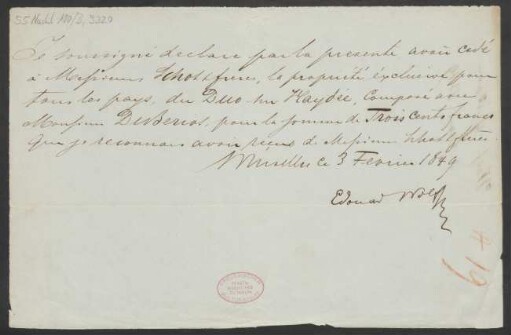 55 Nachl 100/B, 3320
Je soussigné declare par la presente avoir cedé
à Messieurs Schott frères, la propriété exclusive pour
tous les pays, du Duo sur Haydée, composé avec
Monsieur DeBeriot, pour la somme de Trois cents francs
que je reconnais avoir reçus de Messieurs Schott frères.
Bruxelles ce 3 Fevrier 1849
Edouard Wolff